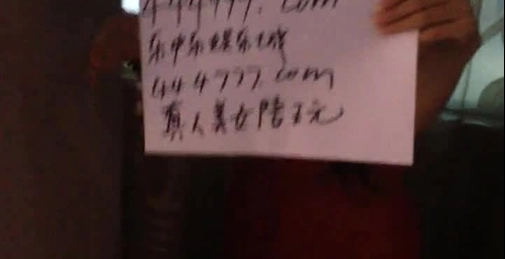 444777. com
乐中乐娱乐城
444777. com
真人美女陪玩